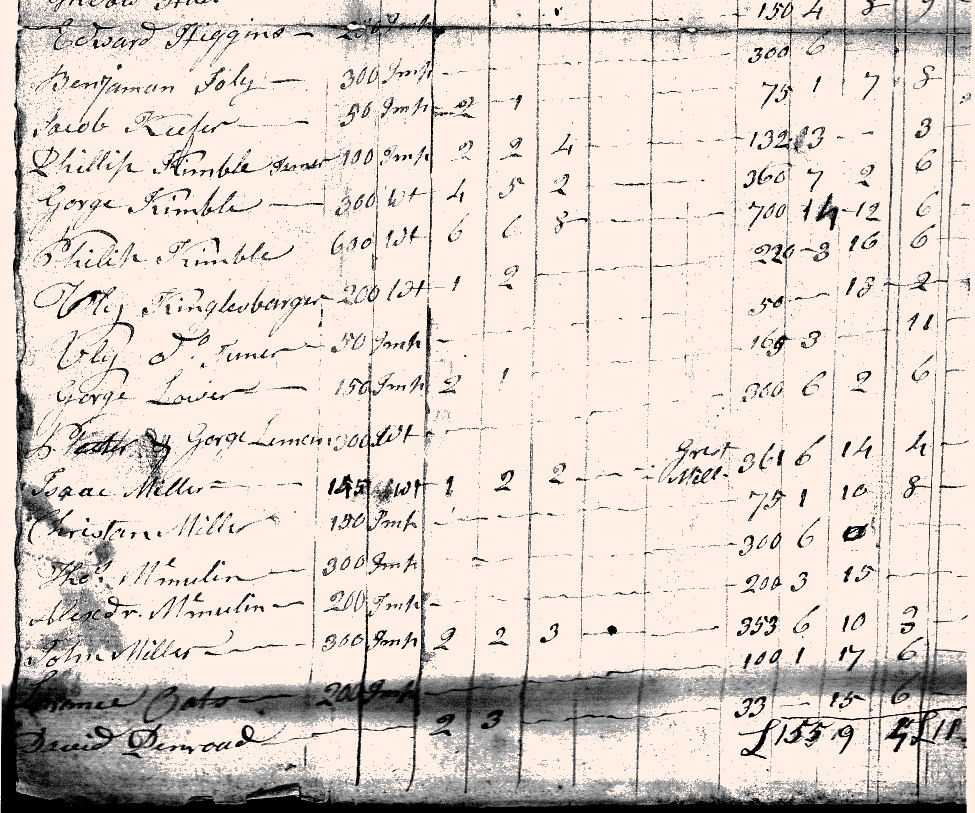 150 4 8 9
Edward Higgins — 300 6
Benjaman Foly — 300 Imp 75 1 7 8
Jacob Keefer — 50 Imp 2 1 132 13 - - 3
Phillip Kimble Juner 100 Imp 2 2 4 360 7 2 6
Gorge Kimble — 300 Wt 4 5 2 700 14 12 6
Philip Kimble 600 Wt 6 6 8 220 3 16 6
Uly Kinglesbarger 200 Wt 1 2 50 — 13 2
Uly Do. Juner 50 Imp - 165 3 11
Gorge Lower 150 Imp 2 1 300 6 2 6
Peeter & Gorge Leman 300 Wt - Grist Mill 361 6 14 4
Isaac Miller 145 Wt 1 2 2 75 1 10 8
Christan Miller 150 Imp 300 6
Thos. Mcmulin 300 Imp 200 3 15
Alexdr. Mcmulin — 200 Imp - 353 6 10 3
John Miller — 300 Imp 2 2 3 100 1 17 6
Oats — 200 Imp 33 — 15 6
David Penroad 2 3 £155 9